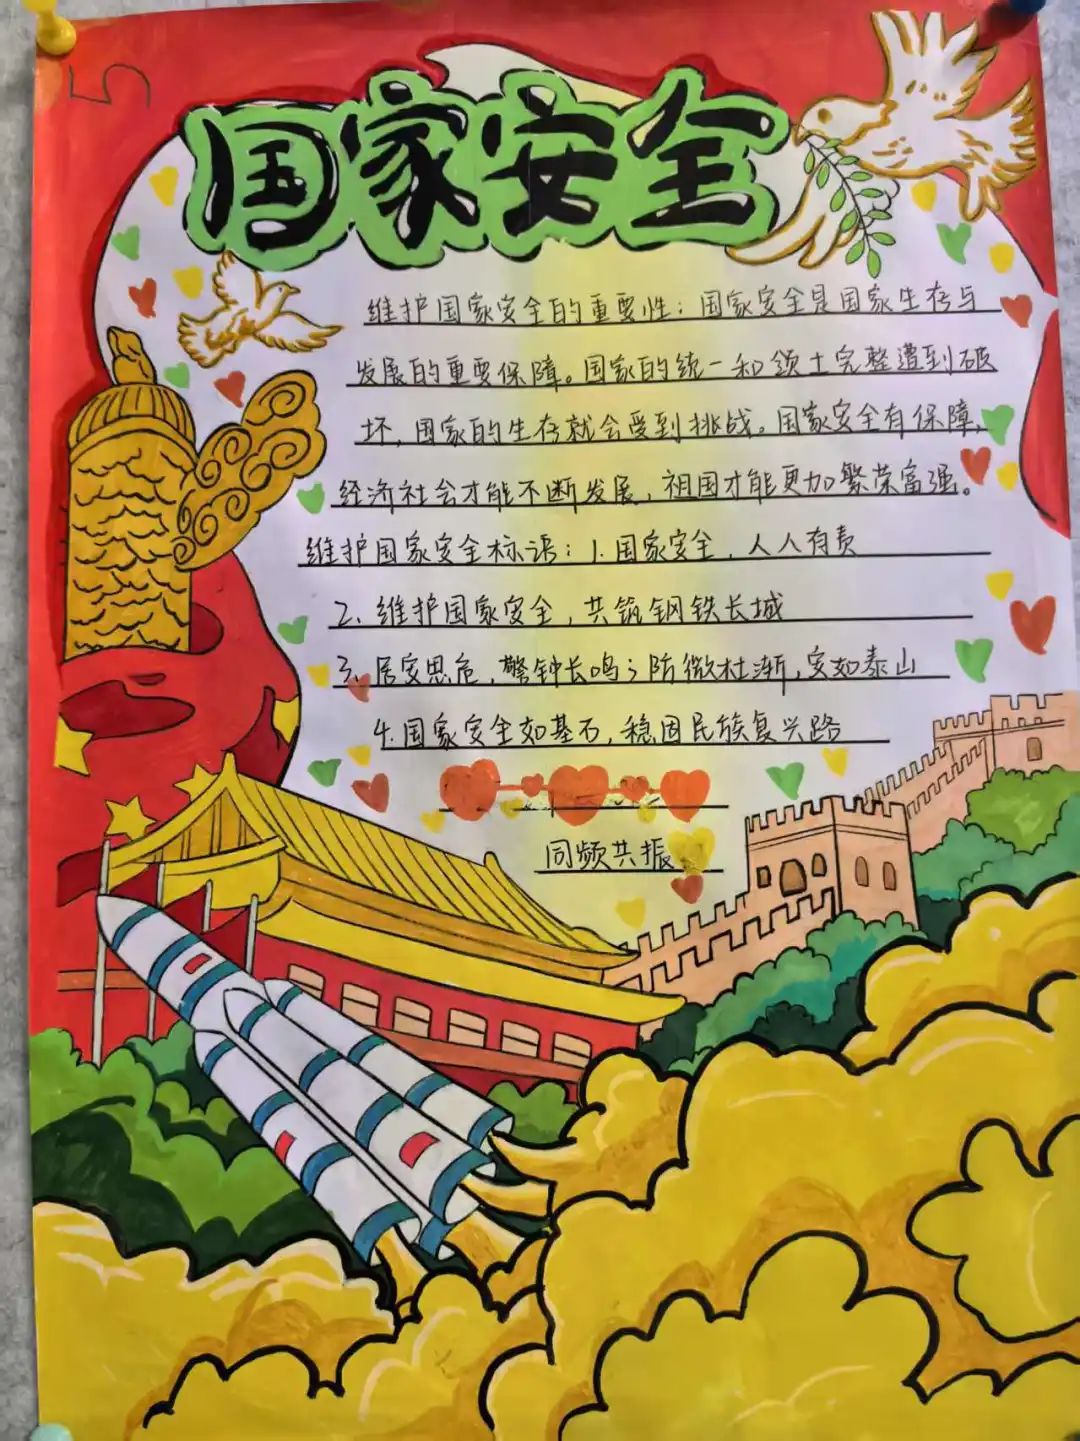 5
国家安全
维护国家安全的重要性：国家安全是国家生存与
发展的重要保障。国家的统一和领土完整遭到破
坏，国家的生存就会受到挑战。国家安全有保障，
经济社会才能不断发展，祖国才能更加繁荣富强。
维护国家安全标语：1.国家安全，人人有责
2、维护国家安全，共筑钢铁长城
3、居安思危，警钟长鸣；防微杜渐，安如泰山
4.国家安全如基石，稳固民族复兴路
同频共振